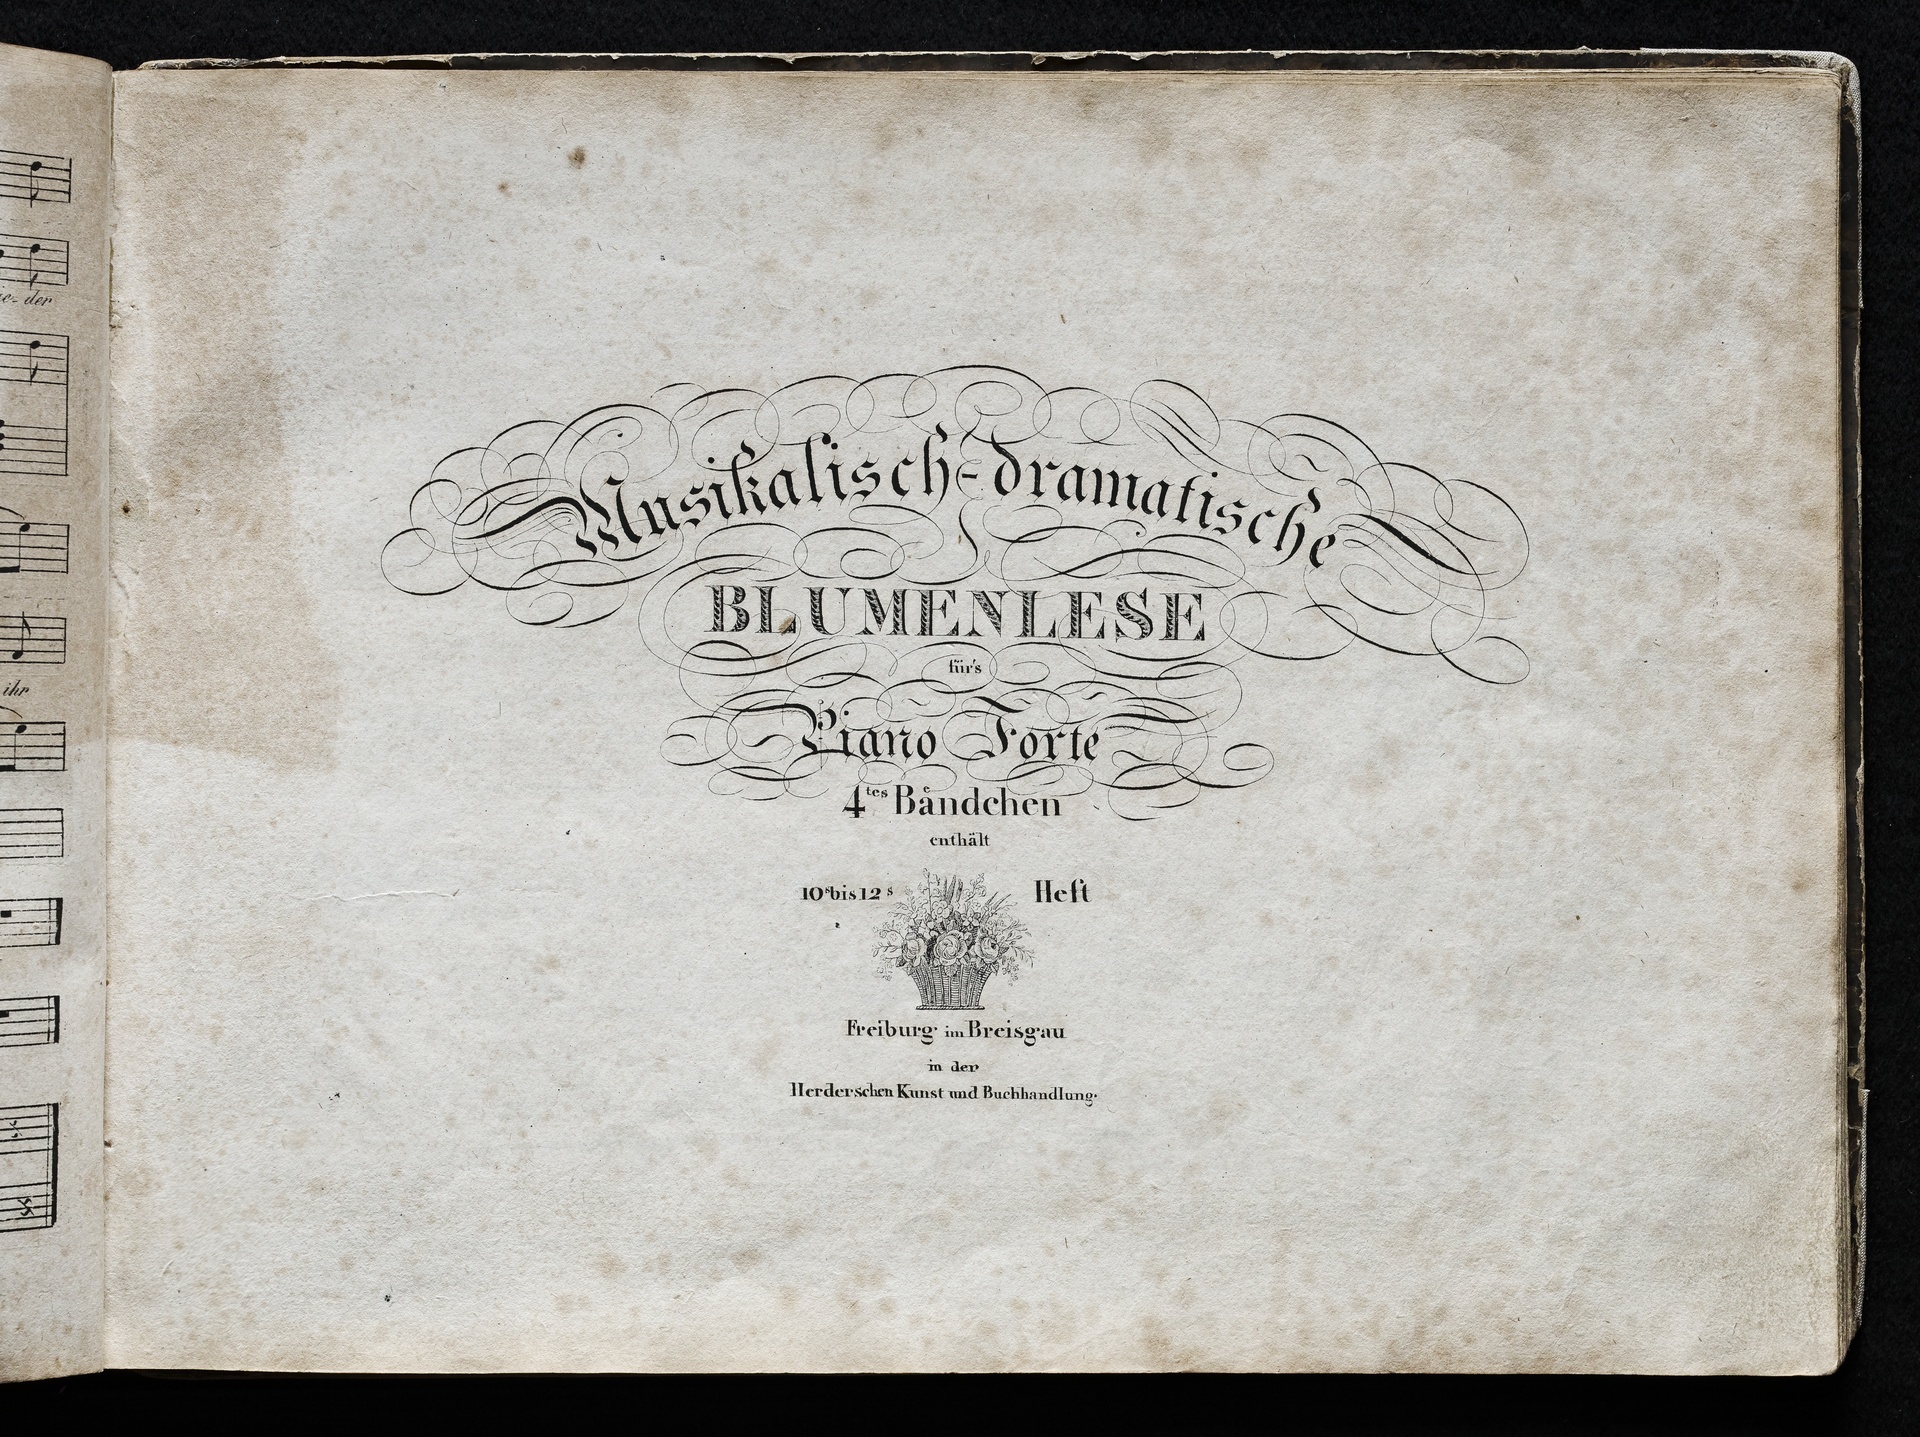 ie-der
ihr
Musikalisch-dramatische
BLUMENLESE
für's
Piano Forte
4tes Bändchen
enthält
10s bis 12s Heft
Freiburg im Breisgau
in der
Herderschen Kunst und Buchhandlung.